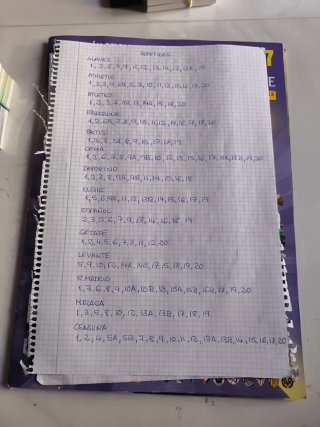 REPETIDAS
ALAVES
1, 2, 6, 7, 9, 11, 12, 13, 14, 17, 18A, 19
ATHLETIC
1, 2, 3, 4, 6B, 5, 7, 10, 11, 13, 15, 16, 18, 20
ATLETICO
1, 2, 3, 7, 8B, 13, 14A, 15, 16, 20
BARCELONA
1, 2, 6B, 7, 8, 9, 10, 11, 12, 14, 16, 17, 18, 20
BETIS
1, 2, 3, 5A, 8, 9, 15, 17, 19
CELTA
1, 2, 6, 7, 8, 9A, 9B, 10, 12, 13, 15, 16, 17, 18A, 18B, 19, 20
DEPORTIVO
1, 2, 3, 8, 9A, 9B, 11, 14, 15, 16, 18
ELCHE
1, 5, 6, 9B, 11, 12, 13B, 14, 15, 16, 17, 19
ESPAÑOL
2, 3, 5, 6, 7, 9, 13, 14, 16, 18, 19
GETAFE
1, 2, 4, 5, 6, 7, 8, 11, 12, 20
LEVANTE
5, 9, 10, 12, 14A, 14B, 17, 15, 18, 19, 20
R. MADRID
1, 3, 6, 8, 9, 10A, 10B, 13, 15A, 15B, 16B, 17, 19, 20
MALAGA
1, 3, 5, 8, 10, 12, 13A, 13B, 17, 18, 19
OSASUNA
1, 2, 4, 5A, 5B, 7, 8, 9, 10, 11, 12, 13A, 13B, 14, 15, 16, 18, 20